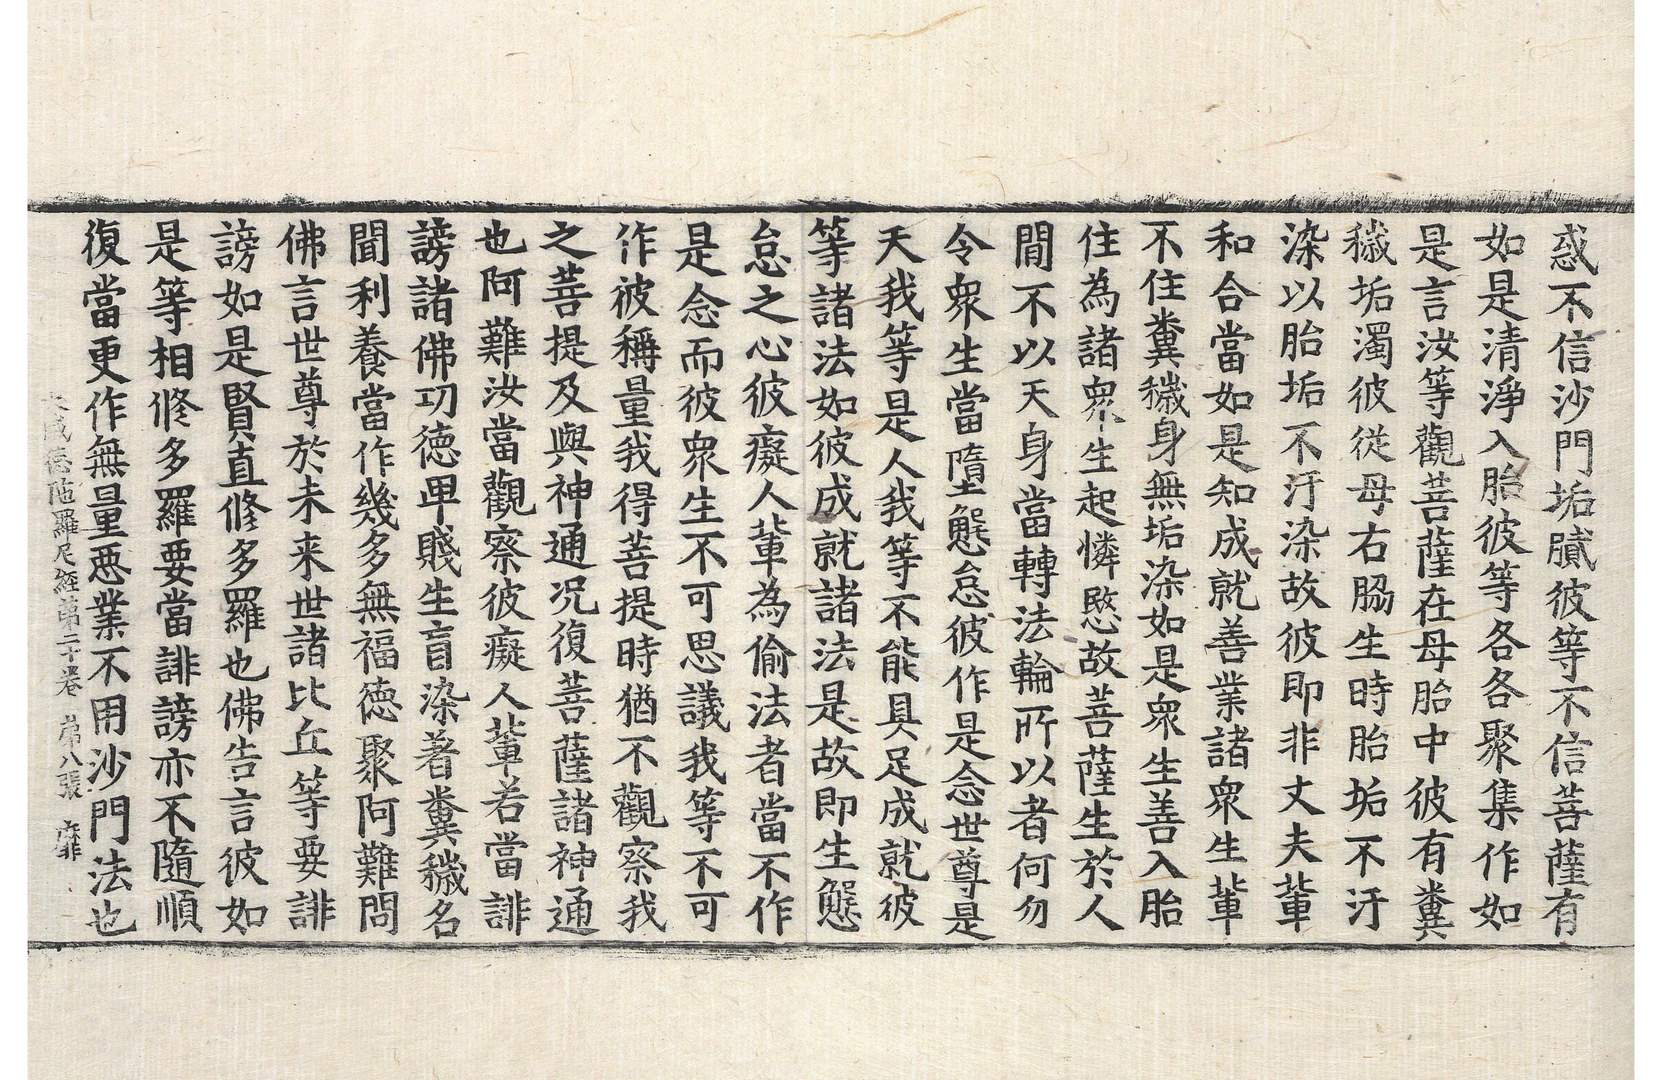 惑不信沙門垢膩彼等不信菩薩有
如是清淨入胎彼等各各聚集作如
是言汝等觀菩薩在母胎中彼有糞
穢垢濁彼從母右脇生時胎垢不汙
染以胎垢不汙染故彼即非丈夫軰
和合當如是知成就善業諸衆生軰
不住糞穢身無垢染如是衆生善入胎
住為諸衆生起憐愍故菩薩生於人
間不以天身當轉法輪所以者何勿
令衆生當墮懈怠彼作是念世尊是
天我等是人我等不能具足成就彼
等諸法如彼成就諸法是故即生懈
怠之心彼癡人軰為偷法者當不作
是念而彼衆生不可思議我等不可
作彼稱量我得菩提時猶不觀察我
之菩提及與神通況復菩薩諸神通
也阿難汝當觀察彼癡人軰若當誹
謗諸佛功德甲賤生盲染著糞穢名
聞利養當作幾多無福德聚阿難問
佛言世尊於未来世諸比丘等要誹
謗如是賢直修多羅也佛告言彼如
是等相修多羅要當誹謗亦不隨順
復當更作無量惡業不用沙門法也
威德陁羅尼經第二十卷 第八張 靡